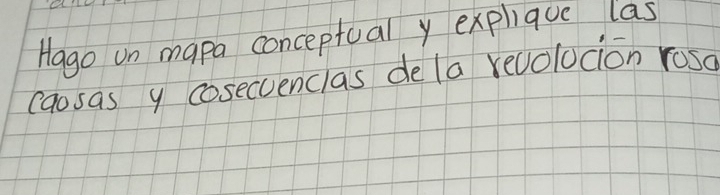 Hago un mapa conceptual y explique las
caosas y cosecuencias de la revolución rosa